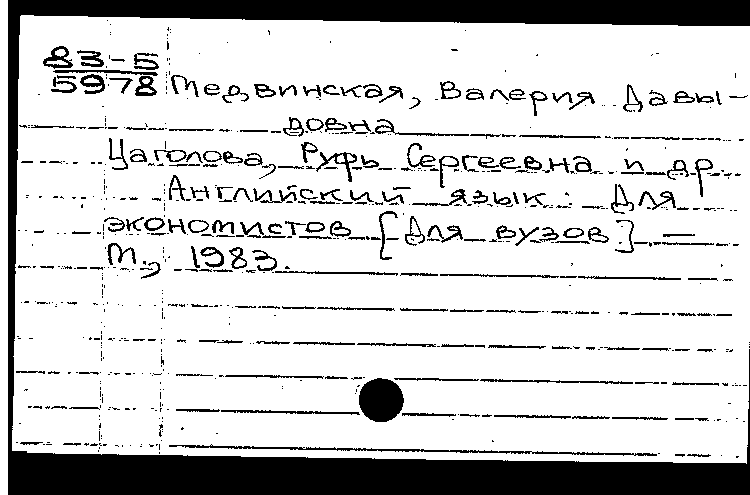 83-5
5978
Медвинская, Валерия Давы-
довна
Цаголова, Руфь Сергеевна и др.
Английский язык: Для
экономистов [Для вузов]. —
М., 1983.